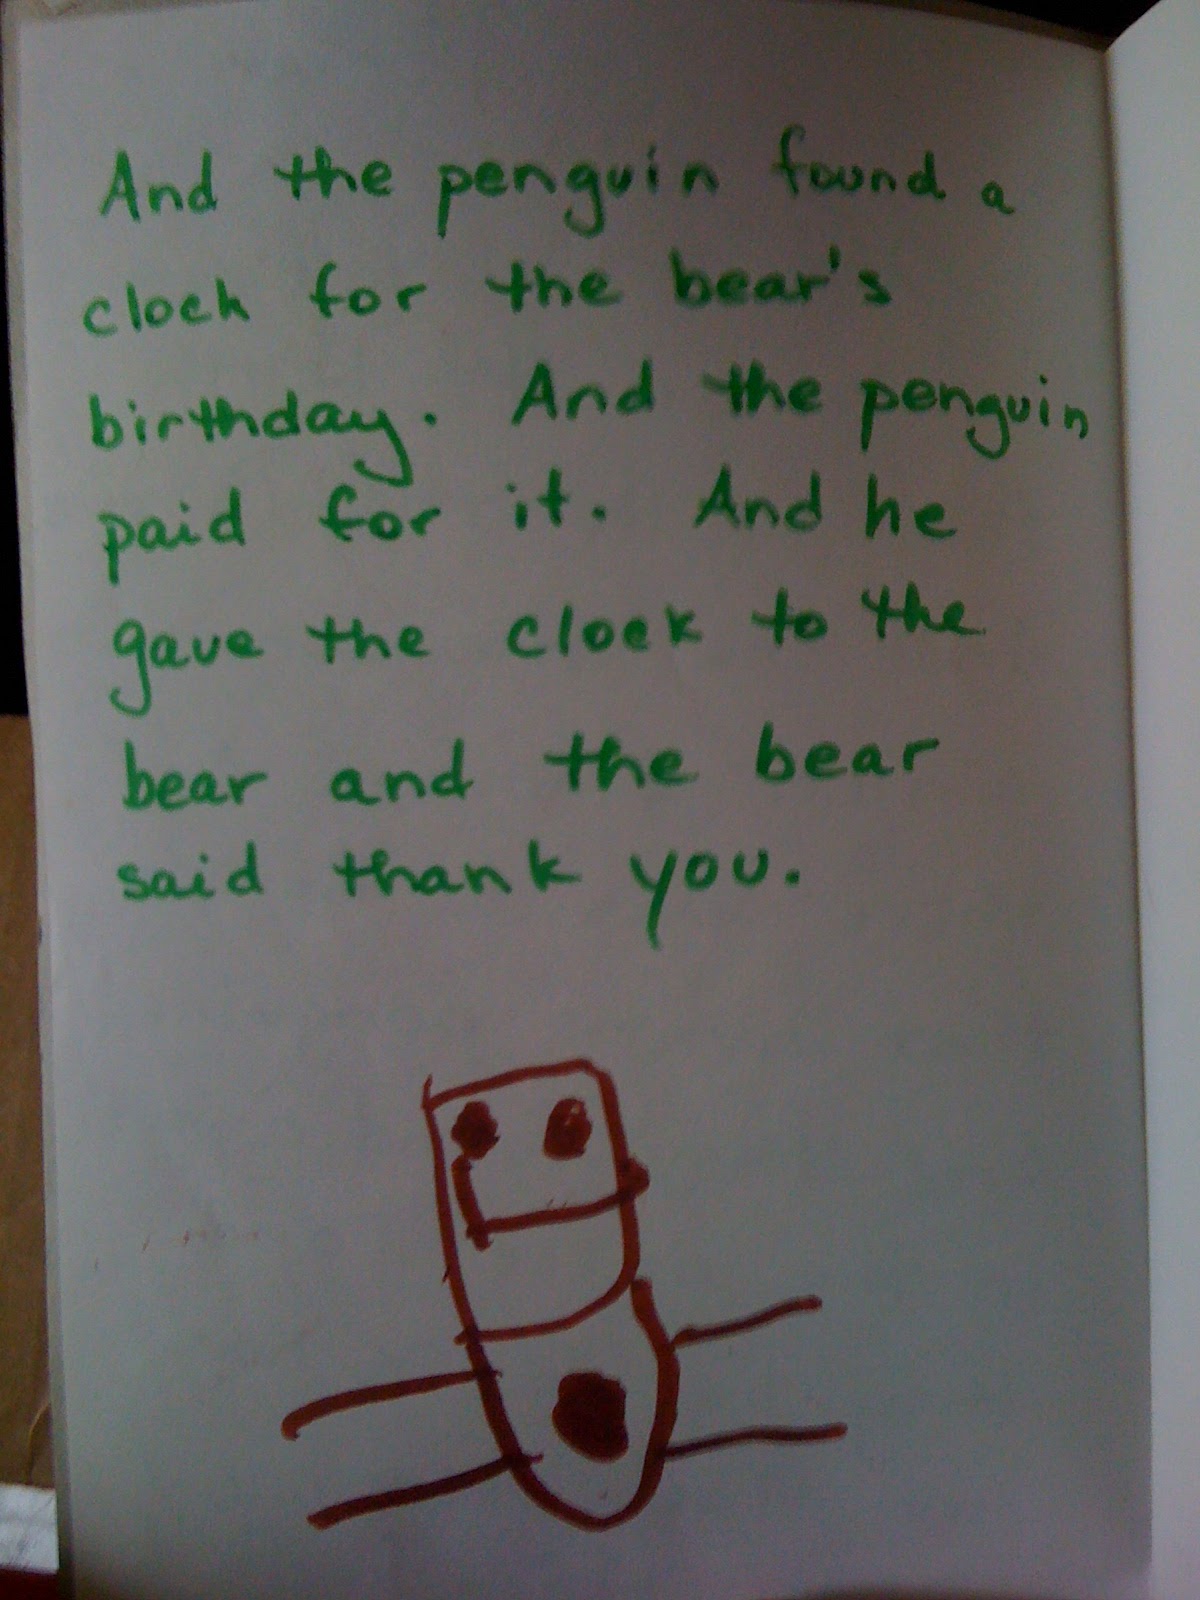 And the penguin found a
clock for the bear's
birthday. And the penguin
paid for it. And he
gave the clock to the
bear and the bear
said thank you.